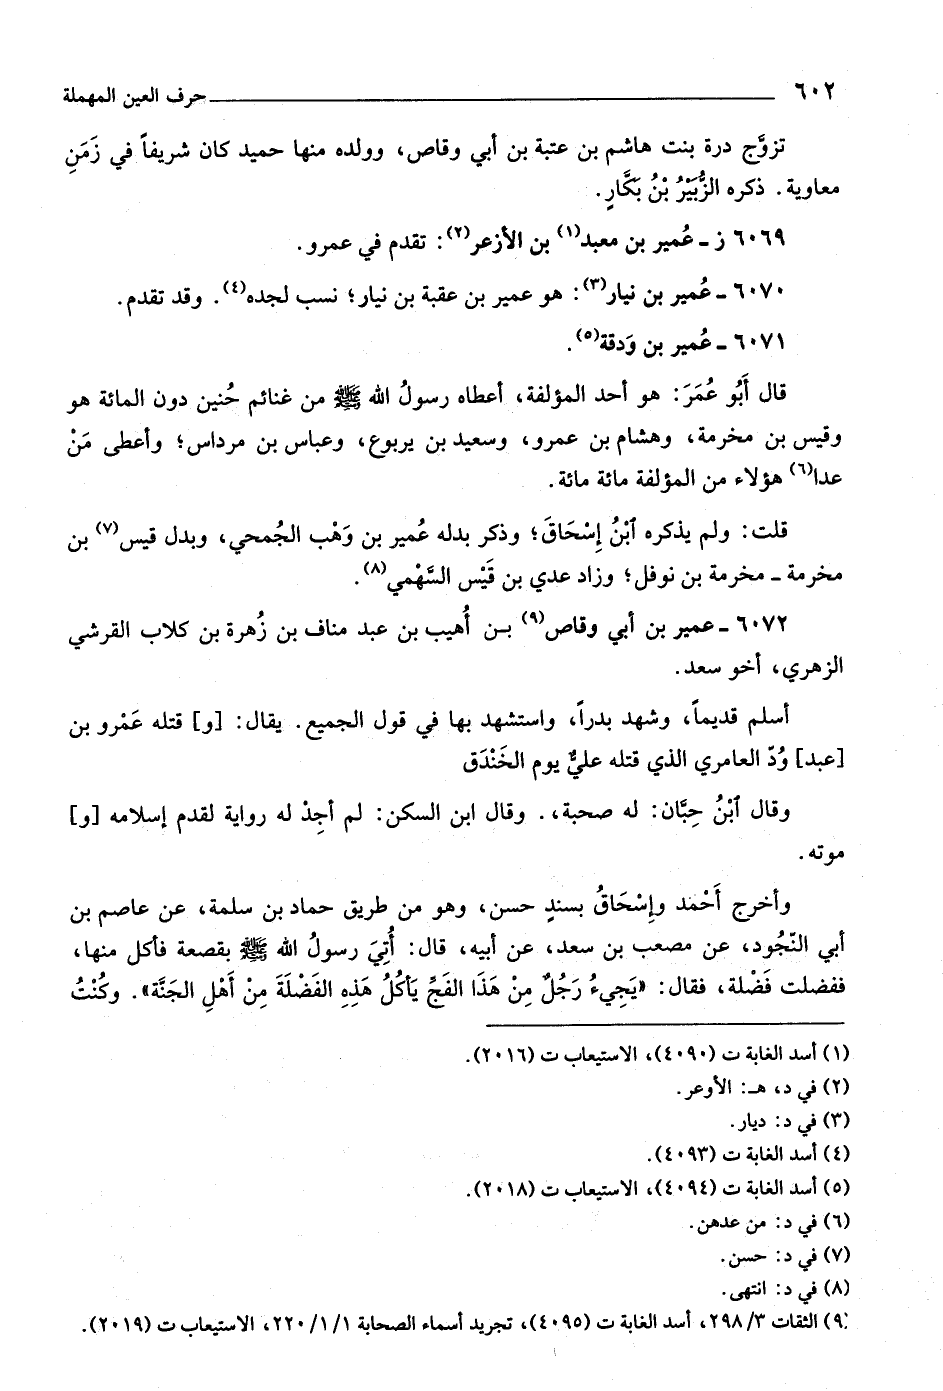 ٦٠٢ حرف العين المهملة
تزوَّج درة بنت هاشم بن عتبة بن أبي وقاص، وولده منها حميد كان شريفاً في زَمَنِ
معاوية. ذكره الزُّبَيْرُ بْنُ بَكَّارٍ.
٦٠٦٩ ز ـ عُمير بن معبد(١) بن الأزعر(٢): تقدم في عمرو.
٦٠٧٠ ـ عُمير بن نيار(٣): هو عمير بن عقبة بن نيار؛ نسب لجده(٤). وقد تقدم.
٦٠٧١ ـ عُمير بن وَدقة(٥).
قال أَبُو عُمَرَ: هو أحد المؤلفة، أعطاه رسولُ الله ﷺ من غنائم حُنين دون المائة هو
وقيس بن مخرمة، وهشام بن عمرو، وسعيد بن يربوع، وعباس بن مرداس؛ وأعطى مَنْ
عدا(٦) هؤلاء من المؤلفة مائة مائة.
قلت: ولم يذكره ٱبْنُ إِسْحَاقَ؛ وذكر بدله عُمير بن وَهْب الجُمحي، وبدل قيس(٧) بن
مخرمة ـ مخرمة بن نوفل؛ وزاد عدي بن قَيْس السَّهْمي(٨).
٦٠٧٢ ـ عمير بن أبي وقاص(٩) بـن أُهيب بن عبد مناف بن زُهرة بن كلاب القرشي
الزهري، أخو سعد.
أسلم قديماً، وشهد بدراً، واستشهد بها في قول الجميع. يقال: [و] قتله عَمْرو بن
[عبد] وُدّ العامري الذي قتله عليٌّ يوم الخَنْدَق
وقال ٱبْنُ حِبَّان: له صحبة،. وقال ابن السكن: لم أجِدْ له رواية لقدم إسلامه [و]
موته.
وأخرج أَحْمَد وإِسْحَاقُ بسندٍ حسن، وهو من طريق حماد بن سلمة، عن عاصم بن
أبي النّجُود، عن مصعب بن سعد، عن أبيه، قال: أُتِيَ رسولُ الله ﷺ بقصعة فأكل منها،
ففضلت فَضْلة، فقال: «يَجِيءُ رَجُلٌ مِنْ هَذَا الفَجِّ يَأكُلُ هَذِهِ الفَضْلَةَ مِنْ أَهْلِ الجَنَّة». وكُنْتُ
(١) أسد الغابة ت (٤٠٩٠)، الاستيعاب ت (٢٠١٦).
(٢) في د، هـ: الأوعر.
(٣) في د: ديار.
(٤) أسد الغابة ت (٤٠٩٣).
(٥) أسد الغابة ت (٤٠٩٤)، الاستيعاب ت (٢٠١٨).
(٦) في د: من عدهن.
(٧) في د: حسن.
(٨) في د: انتهى.
(٩) الثقات ٣/ ٢٩٨، أسد الغابة ت (٤٠٩٥)، تجريد أسماء الصحابة ١/ ١/ ٢٢٠، الاستيعاب ت (٢٠١٩).